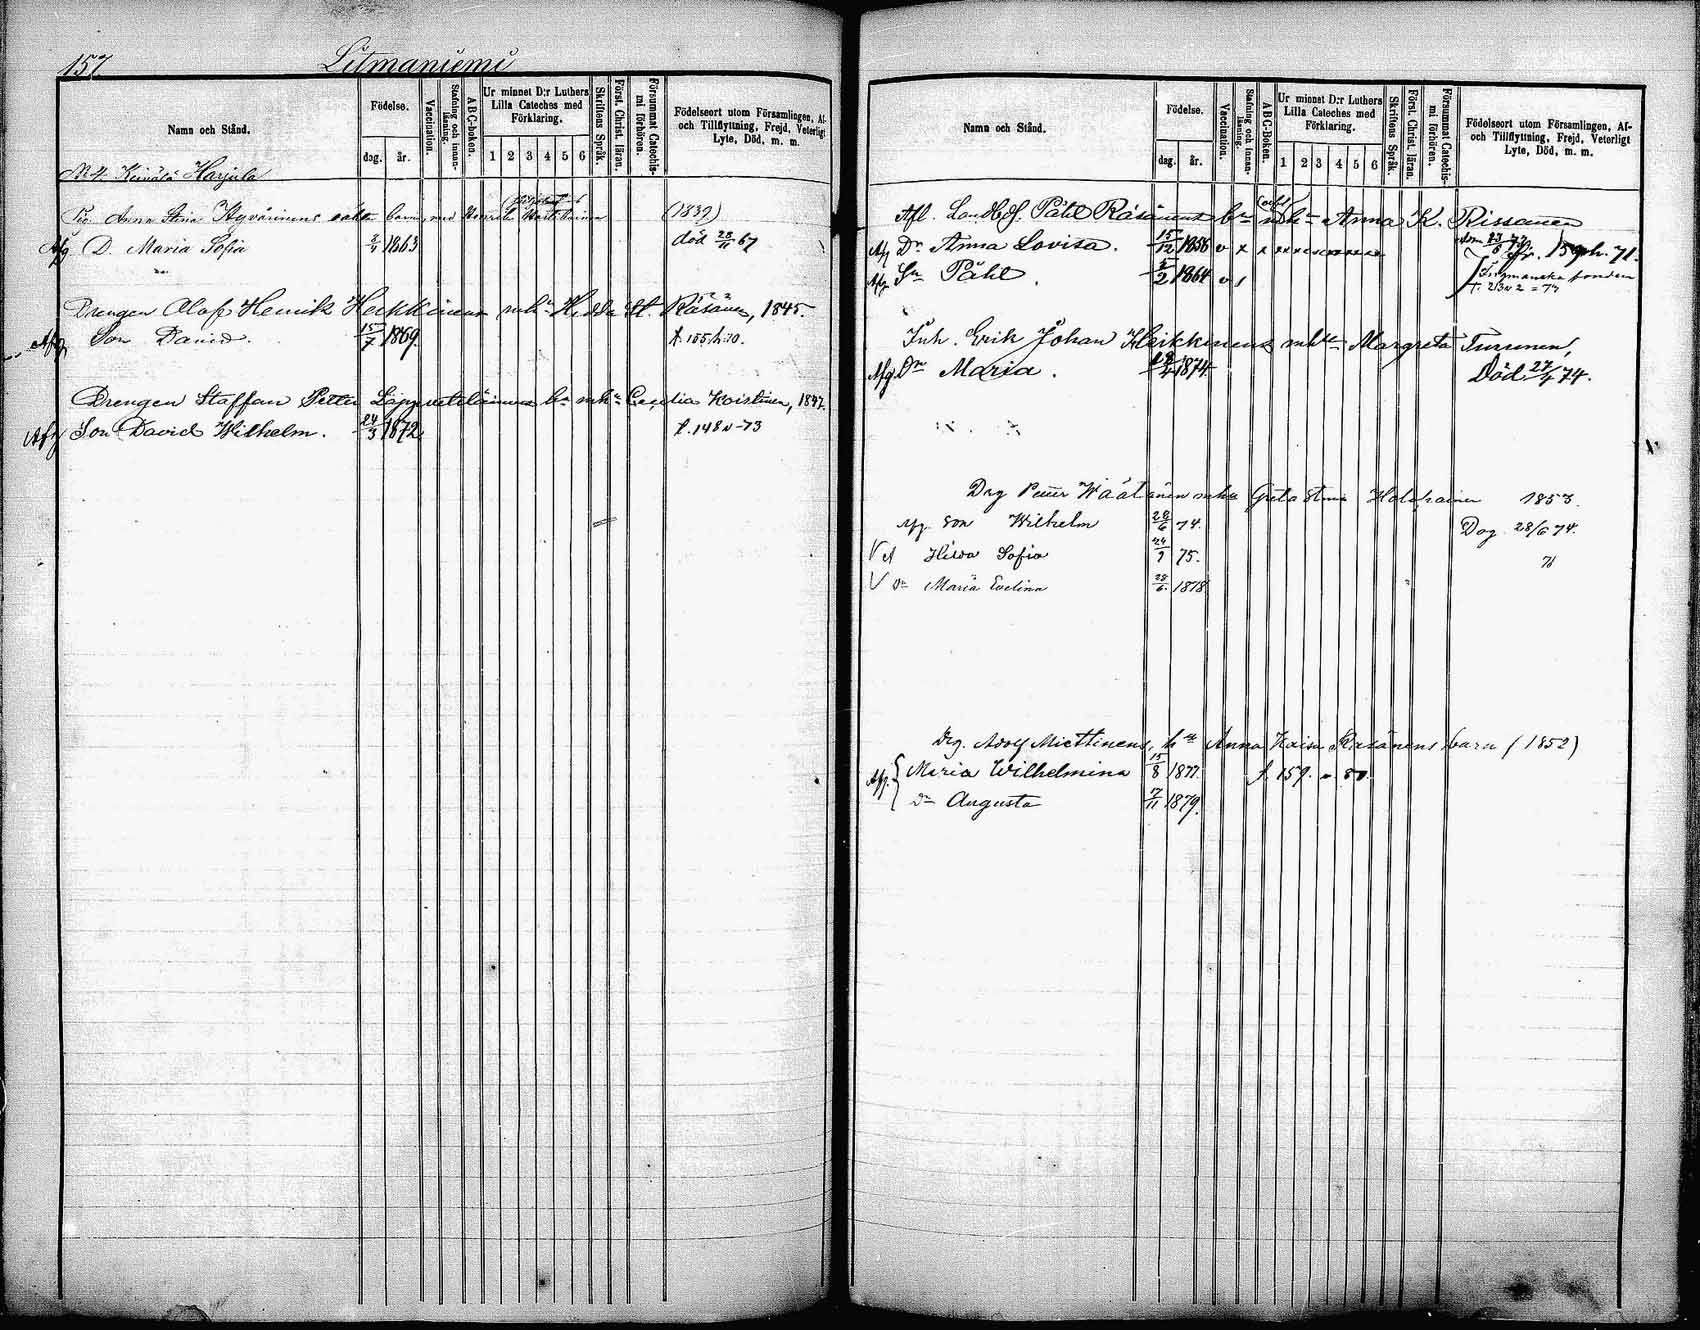 157.
Litmaniemi
Namn och Stånd.
Födelse.
dag. år.
Vaccination.
Stafning och innan-läsning.
ABC-boken.
Ur minnet D:r Luthers Lilla Cateches med Förklaring.
1 2 3 4 5 6
Skriftens Språk.
Först. Christ. läran.
Försummat Catechis-mi förhören.
Födelseort utom Församlingen, Af- och Tillflyttning, Frejd, Veterligt Lyte, Död, m. m.
N:4. Keinälä Harjula
Pig. Anna Stina Hyvärinens oäkta barn, med Henrik (1839)
Afg D. Maria Sofia 3/4 1863 död 28/11 67
Drengen Olof Henrik Heikkinens mh:u Hedda St. Räsänen, 1845.
Afg Son David. 15/7 1869. f. 155/h. 70.
Drengen Staffan Petter Lappveteläinens b:n mh:u Cecilia Koistinen, 1847.
Afg Son David Wilhelm. 24/3 1872 f. 148 v -73
Namn och Stånd.
Födelse.
dag. år.
Vaccination.
Stafning och innan-läsning.
ABC-Boken.
Ur minnet D:r Luthers Lilla Cateches med Förklaring.
1 2 3 4 5 6
Skriftens Språk.
Först. Christ. läran.
Försummat Catechis-mi förhören.
Födelseort utom Församlingen, Af- och Tillflyttning, Frejd, Veterligt Lyte, Död, m. m.
Afl. Landbd. Påhl Räsänens b:n mh:u Anna K. Rissanen
Afg D:r Anna Lovisa. 15/12 1856 v x x 159 h. 71.
Afg Sn Påhl. 5/2 1864 v 1 fonden
Inh. Erik Johan Heikkinens mh:u Margreta Turunen,
Afg. D:r Maria. 1874. Död 27/4 74.
Drg Petter Väätänen mhu Greta Stina Holopainen 1853.
Afg. Son Wilhelm 28/6 74. Dog 28/6 74.
V d Hilda Sofia 24/9 75. 76
V Dr Maria Evelina 28/6. 1878
Drg. Adolf Miettinens, h:u Anna Kaisa Räsänens barn (1852)
Afg. Maria Wilhelmina 15/8 1877. f. 159. v 80
Dr Augusta 7/11 1879.